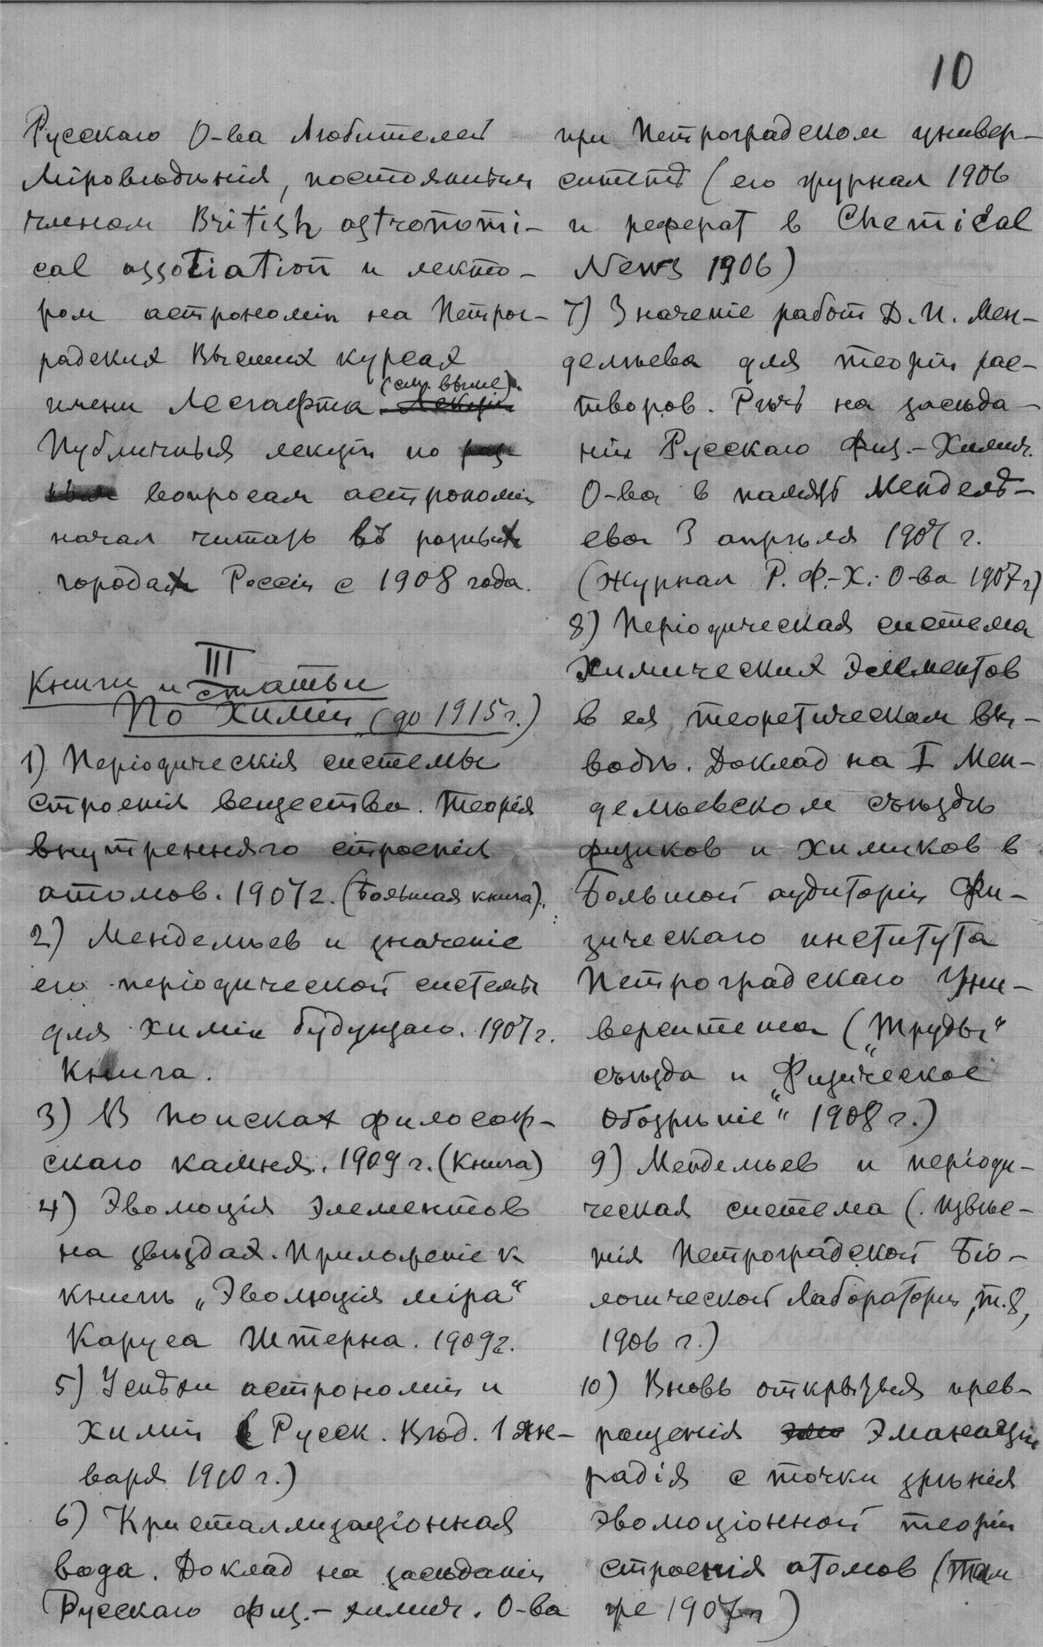 10
Русскаго О-ва Любителей
Міровѣдѣнія, постоянным
членом British astronomi-
cal assotiation и лекто-
ром астрономіи на Петрог-
радских Высших курсах
имени Лесгафта (см. выше).
Публичныя лекціи по
вопросам астрономіи
начал читать въ разных
городах Россіи с 1908 года.
III
Книги и статьи
По Химіи (до 1915 г.)
1) Періодическія системы
строенія вещества. Теорія
внутренняго строенія
атомов. 1907 г. (Большая книга).
2) Менделѣев и значеніе
его періодической системы
для химіи будущаго. 1907 г.
Книга.
3) В поисках философ-
скаго камня. 1909 г. (Книга)
4) Эволюція элементов
на звѣздах. Приложеніе к
книгѣ „Эволюція міра“
Каруса Штерна. 1909 г.
5) Успѣхи астрономіи и
химіи (Русск. Вѣд. 1 Ян-
варя 1910 г.)
6) Кристаллизаціонная
вода. Доклад на засѣданіи
Русскаго физ.-химич. О-ва
при Петроградском универ-
ситетѣ (его журнал 1906
и реферат в Chemical
News 1906)
7) Значеніе работ Д. И. Мен-
делѣева для теоріи рас-
творов. Рѣчь на засѣда-
ніи Русскаго Физ.-Химич.
О-ва в память Менделѣ-
ева 3 апрѣля 1907 г.
(Журнал Р. Ф.-Х. О-ва 1907 г)
8) Періодическая система
химических элементов
в ея теоретическом вы-
водѣ. Доклад на I Мен-
делѣевском съѣздѣ
физиков и химиков в
Большой аудиторіи Фи-
зическаго института
Петроградскаго Уни-
верситета („Труды“
съѣзда и „Физическое
Обозрѣніе“ 1908 г.)
9) Менделѣев и періоди-
ческая система (Извѣс-
тія Петроградской Біо-
логической Лабораторіи, т. 8,
1906 г.)
10) Вновь открытыя прев-
ращенія Эманаціи
радія с точки зрѣнія
эволюціонной теоріи
строенія атомов (Там
же 1907 г)